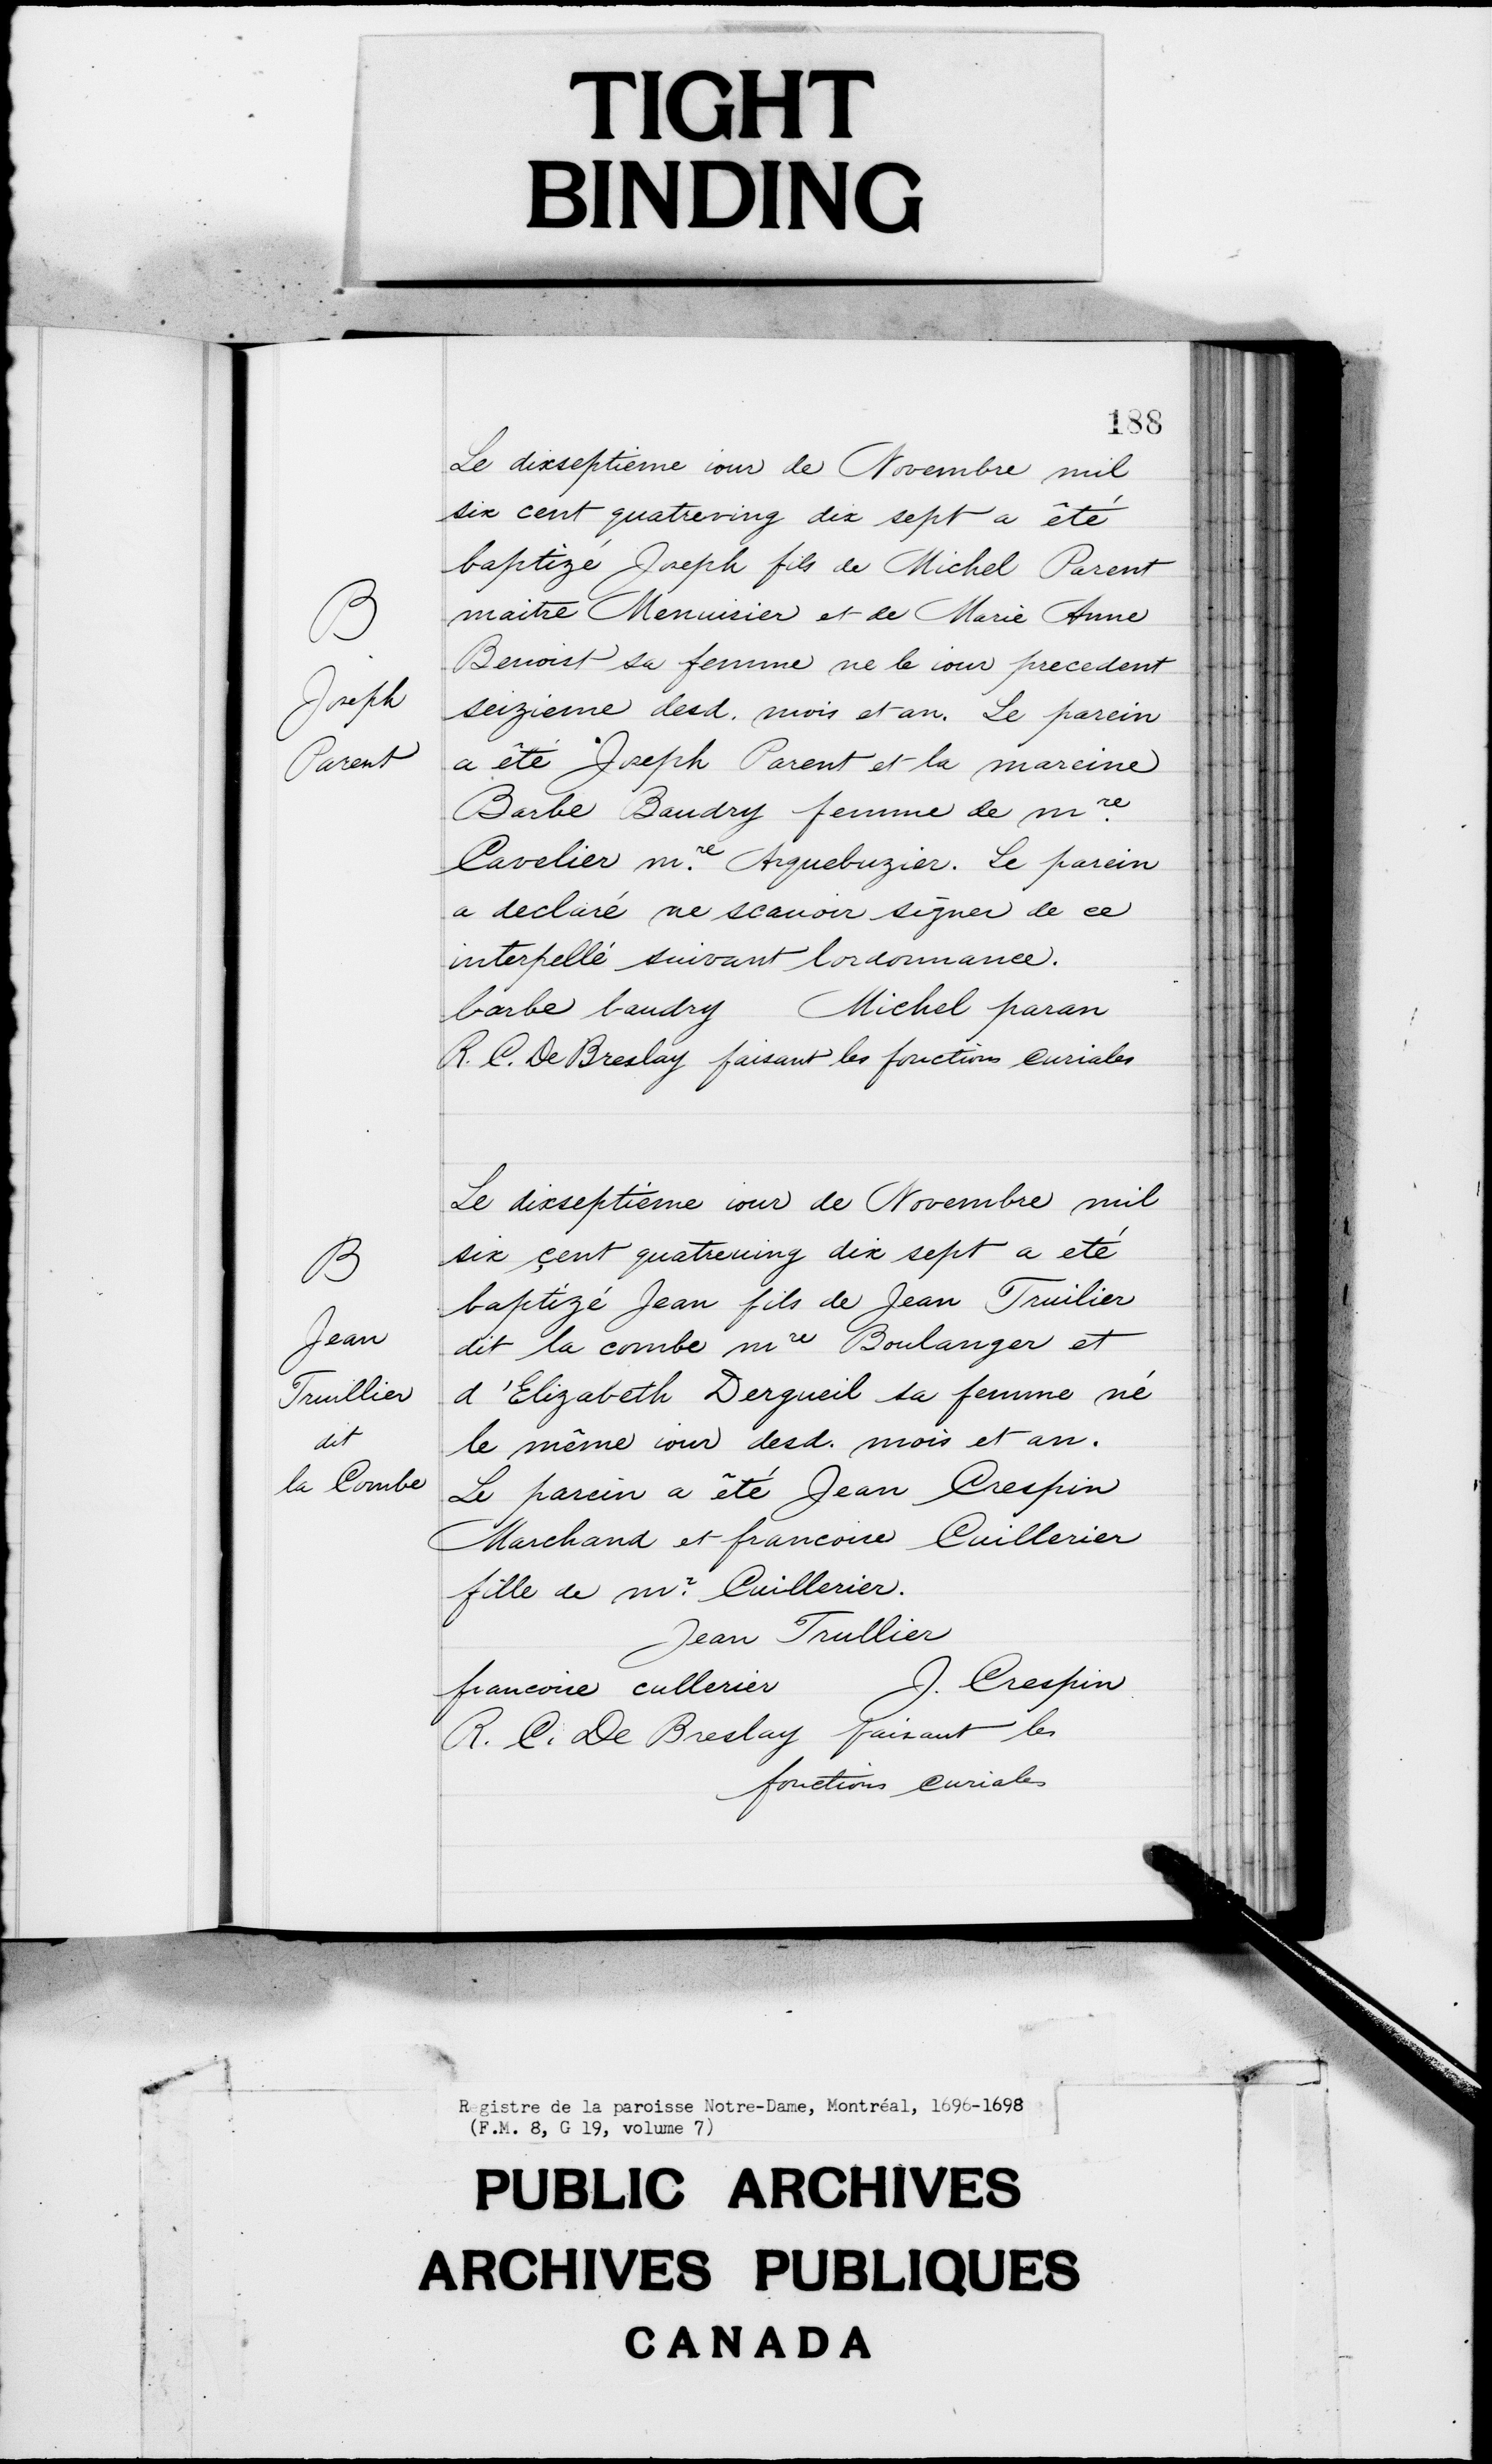 TIGHT
BINDING
188
Le dixseptieme iour de Novembre mil
six cent quatreving dix sept a êté
baptizé Joseph fils de Michel Parent
B
maitre Menuisier et de Marie Anne
Benoist sa femme ne le iour precedent
Joseph
seizieme desd. mois et an. Le parein
Parent
a êté Joseph Parent et la mareine
Barbe Baudry femme de mre
Cavelier m.re Arquebuzier. Le parein
a declaré ne scauoir signer de ce
interpellé suivant lordonnance.
barbe baudry Michel paran
R. C. De Breslay faisant les fonctions curiales
Le dixseptiéme iour de Novembre mil
B
six çent quatreuing dix sept a eté
baptizé Jean fils de Jean Truilier
Jean
dit la combe mre Boulanger et
Truillier
d'Elizabeth Dergueil sa femme né
dit
le même iour desd. mois et an.
la Combe
Le parein a êté Jean Crespin
Marchand et francoise Cuillerier
fille de mr. Cuillerier.
Jean Trullier
francoise cullerier J. Crespin
R. C. De Breslay faisant les
fonctions curiales
Registre de la paroisse Notre-Dame, Montréal, 1696-1698
(F.M. 8, G 19, volume 7)
PUBLIC ARCHIVES
ARCHIVES PUBLIQUES
CANADA